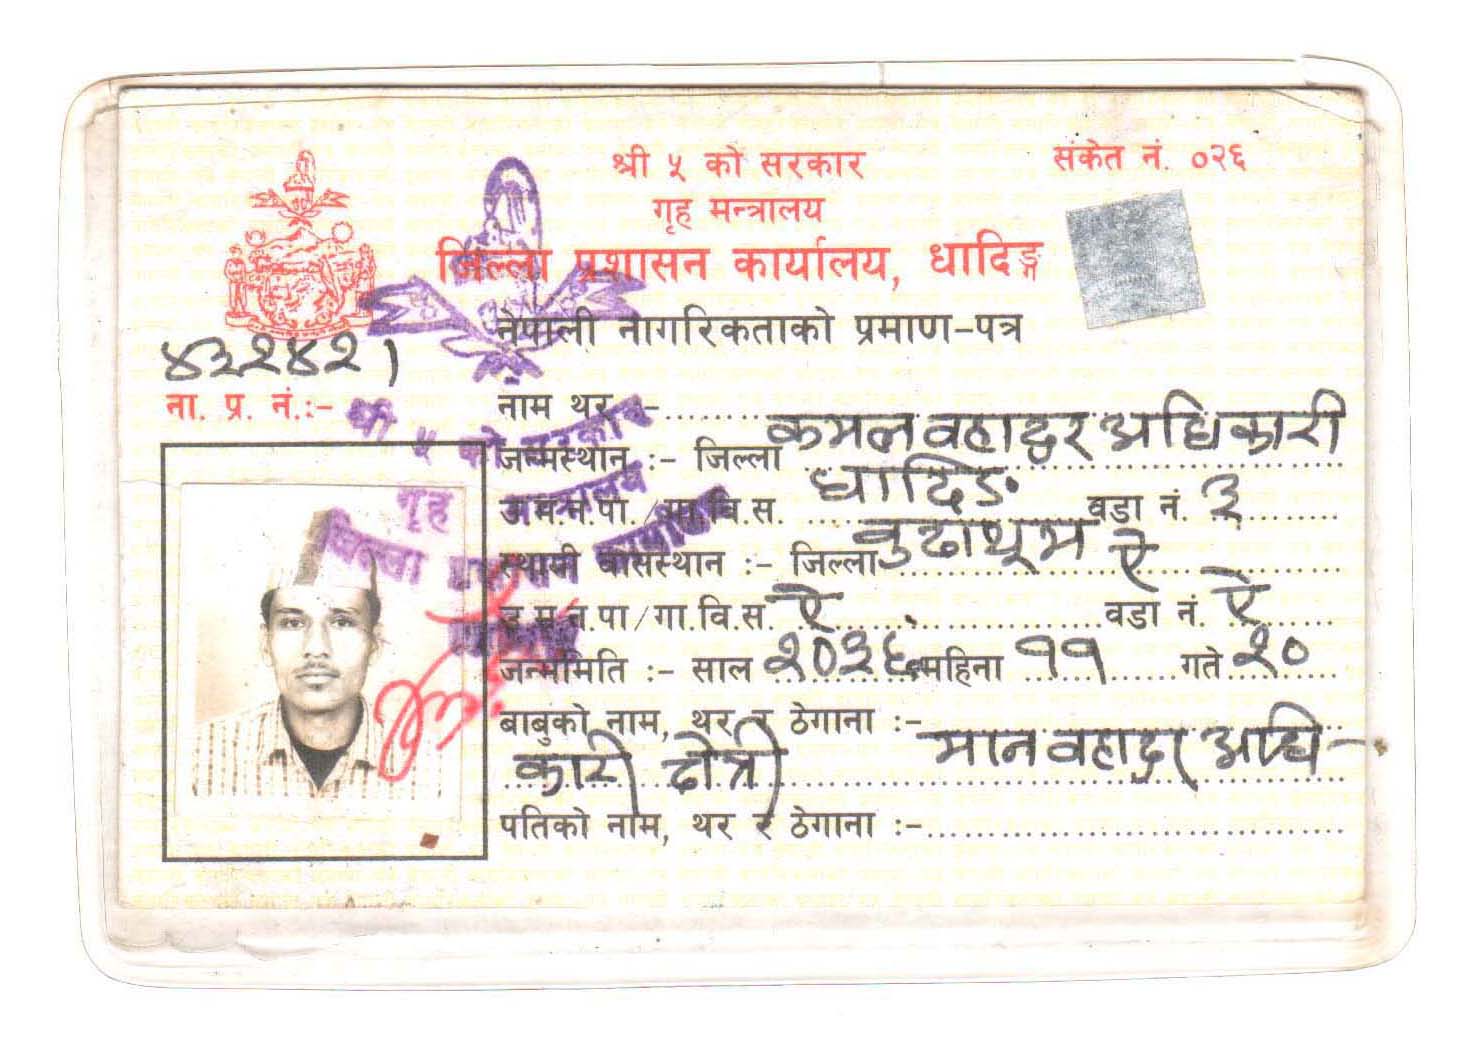 श्री ५ को सरकार
संकेत नं. ०२६
गृह मन्त्रालय
जिल्ला प्रशासन कार्यालय, धादिङ्ग
नेपाली नागरिकताको प्रमाण-पत्र
४३२४२१
ना. प्र. नं.:-
नाम थर :- कमल वहादुर अधिकारी
जन्मस्थान :- जिल्ला धादिङ
उ.म.न.पा. /गा.वि.स. वुढाथूम वडा नं. ३
स्थायी वासस्थान :- जिल्ला ऐ
उ.म.न.पा/गा.वि.स. ऐ वडा नं. ऐ
जन्ममिति :- साल २०३६ महिना ११ गते २०
बाबुको नाम, थर र ठेगाना :- मान वहादुर अधि-
कारी
पतिको नाम, थर र ठेगाना :-
श्री ५ को सरकार
गृह मन्त्रालय
जिल्ला